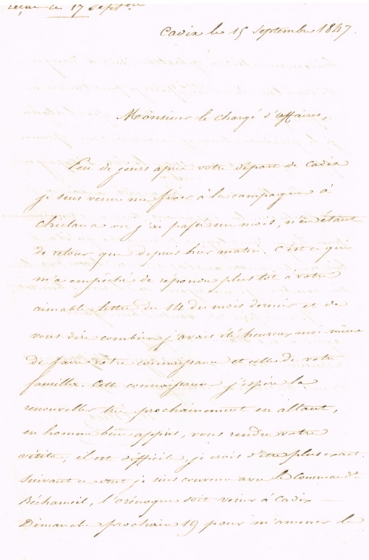 reçue le 17 septbre
Cadix le 15 Septembre 1847.
Monsieur le chargé d'affaires,
Peu de jours après votre départ de Cadix
je suis venu me fixer à la campagne à
Chiclana où j'ai passé un mois, n'en étant
de retour que depuis hier matin. C'est ce qui
m'a empêché de répondre plus tôt à votre
aimable lettre du 14 du mois dernier et de
vous dire combien j'avais été heureux moi-même
de faire votre connaissance et celle de votre
famille. Cette connaissance j'espère la
renouveller très prochainement en allant,
en homme bien appris, vous rendre votre
visite, il est difficile je crois d'être plus exact.
Suivant ce dont je suis convenu avec le Commandt
Béchameil, l'Orénoque doit venir à Cadix
Dimanche prochain 19 pour m'amener le